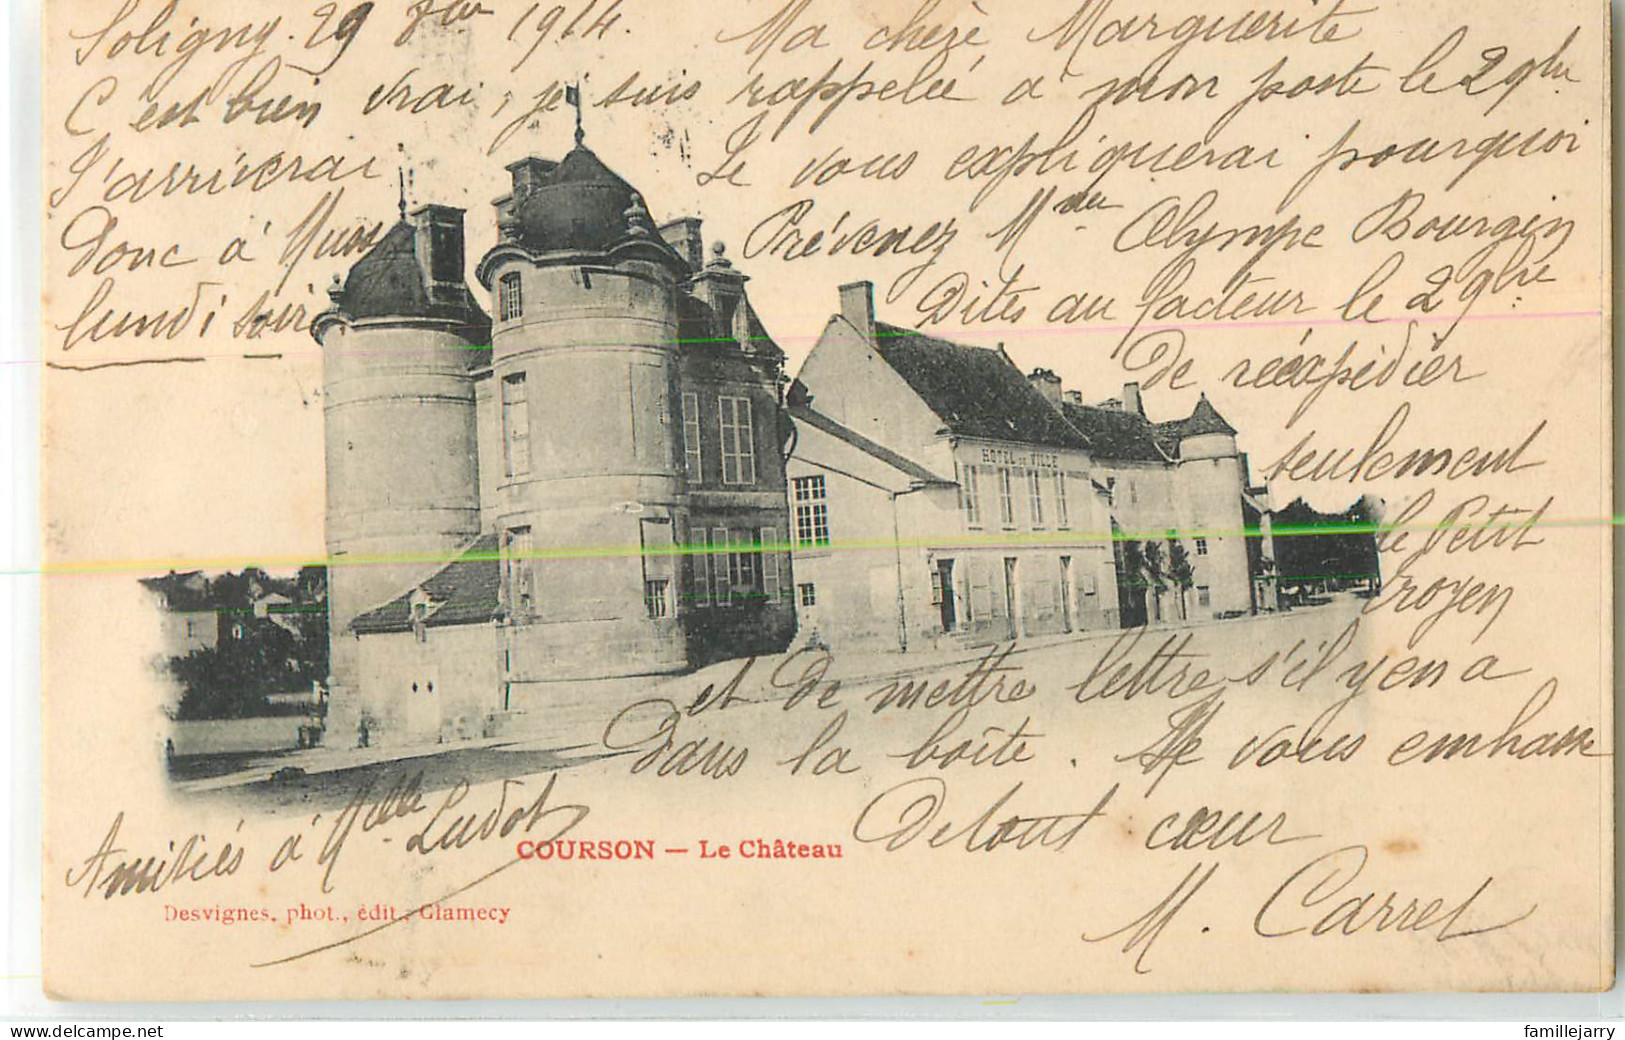 Soligny. 29 8bre 1914. Ma chère Marguerite
C'est bien vrai, je suis rappelée à mon poste le 2 9bre.
J'arriverai Je vous expliquerai pourquoi
donc à Prévenez Mme Olympe Bourgin
lundi soir Dites au facteur le 2 9bre
de réexpédier
seulement
HOTEL DE VILLE
le Petit
troyen
et de mettre lettre s'il y en a
dans la boîte. Je vous embrasse
Amitiés à Mlle Ludot
De tout cœur
COURSON — Le Château
M. Carrel
Desvignes, phot., édit., Clamecy
www.delcampe.net
famillejarry